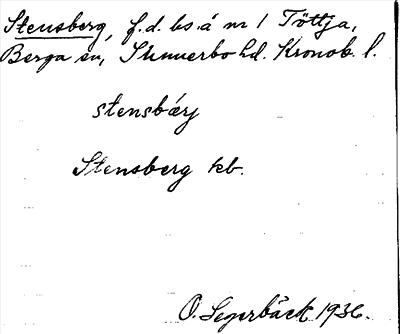 Stensberg, f.d. bs. å nr 1 Töttja,
Berga sn, Sunnerbo hd. Kronob. l.
stensbærj
Stensberg kb.
O. Segerbäck 1936.